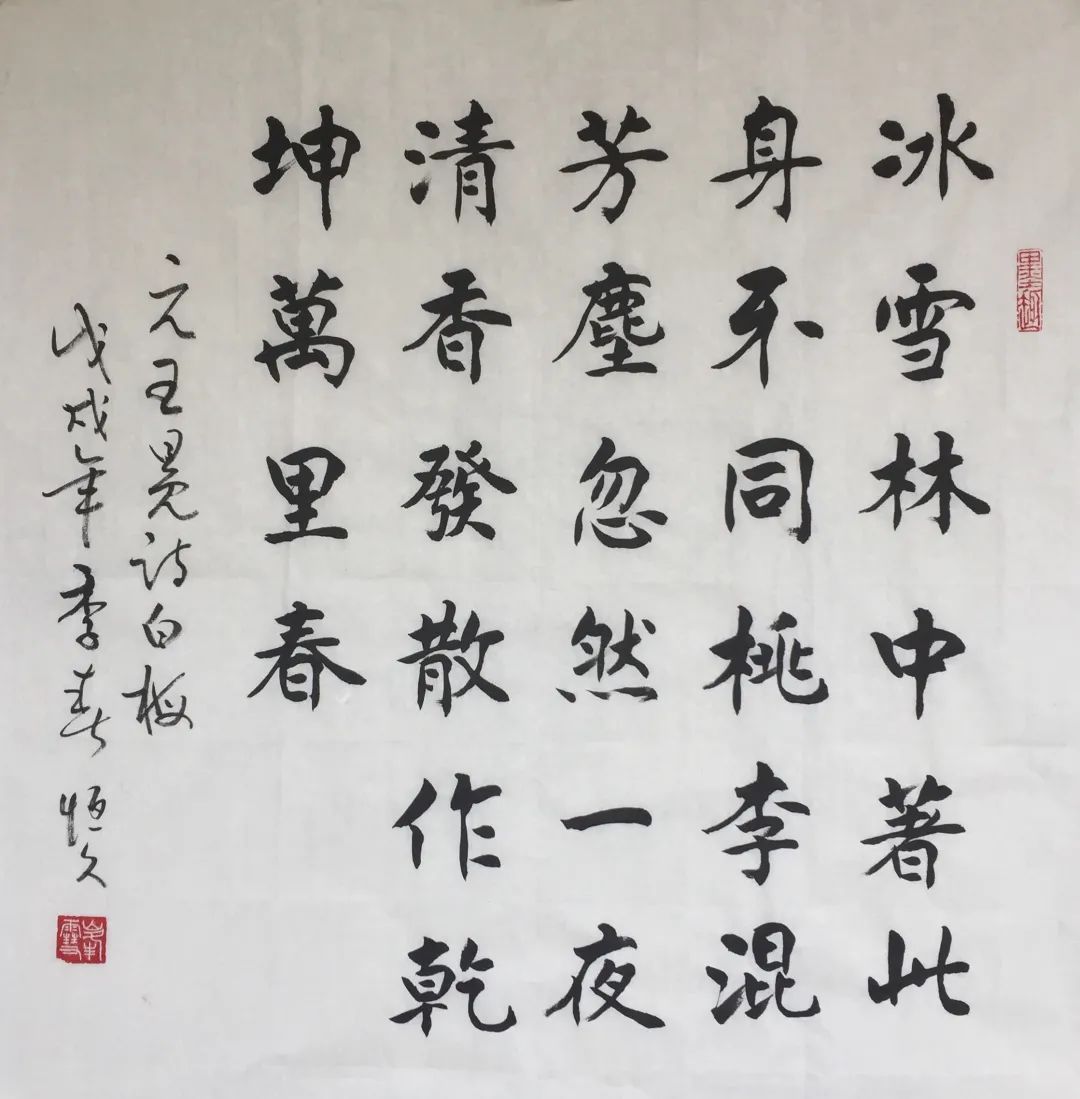 冰雪林中著此
身不同桃李混
芳塵忽然一夜
清香發散作乾
坤萬里春
元王冕詩白梅
戊戌年季春恒久